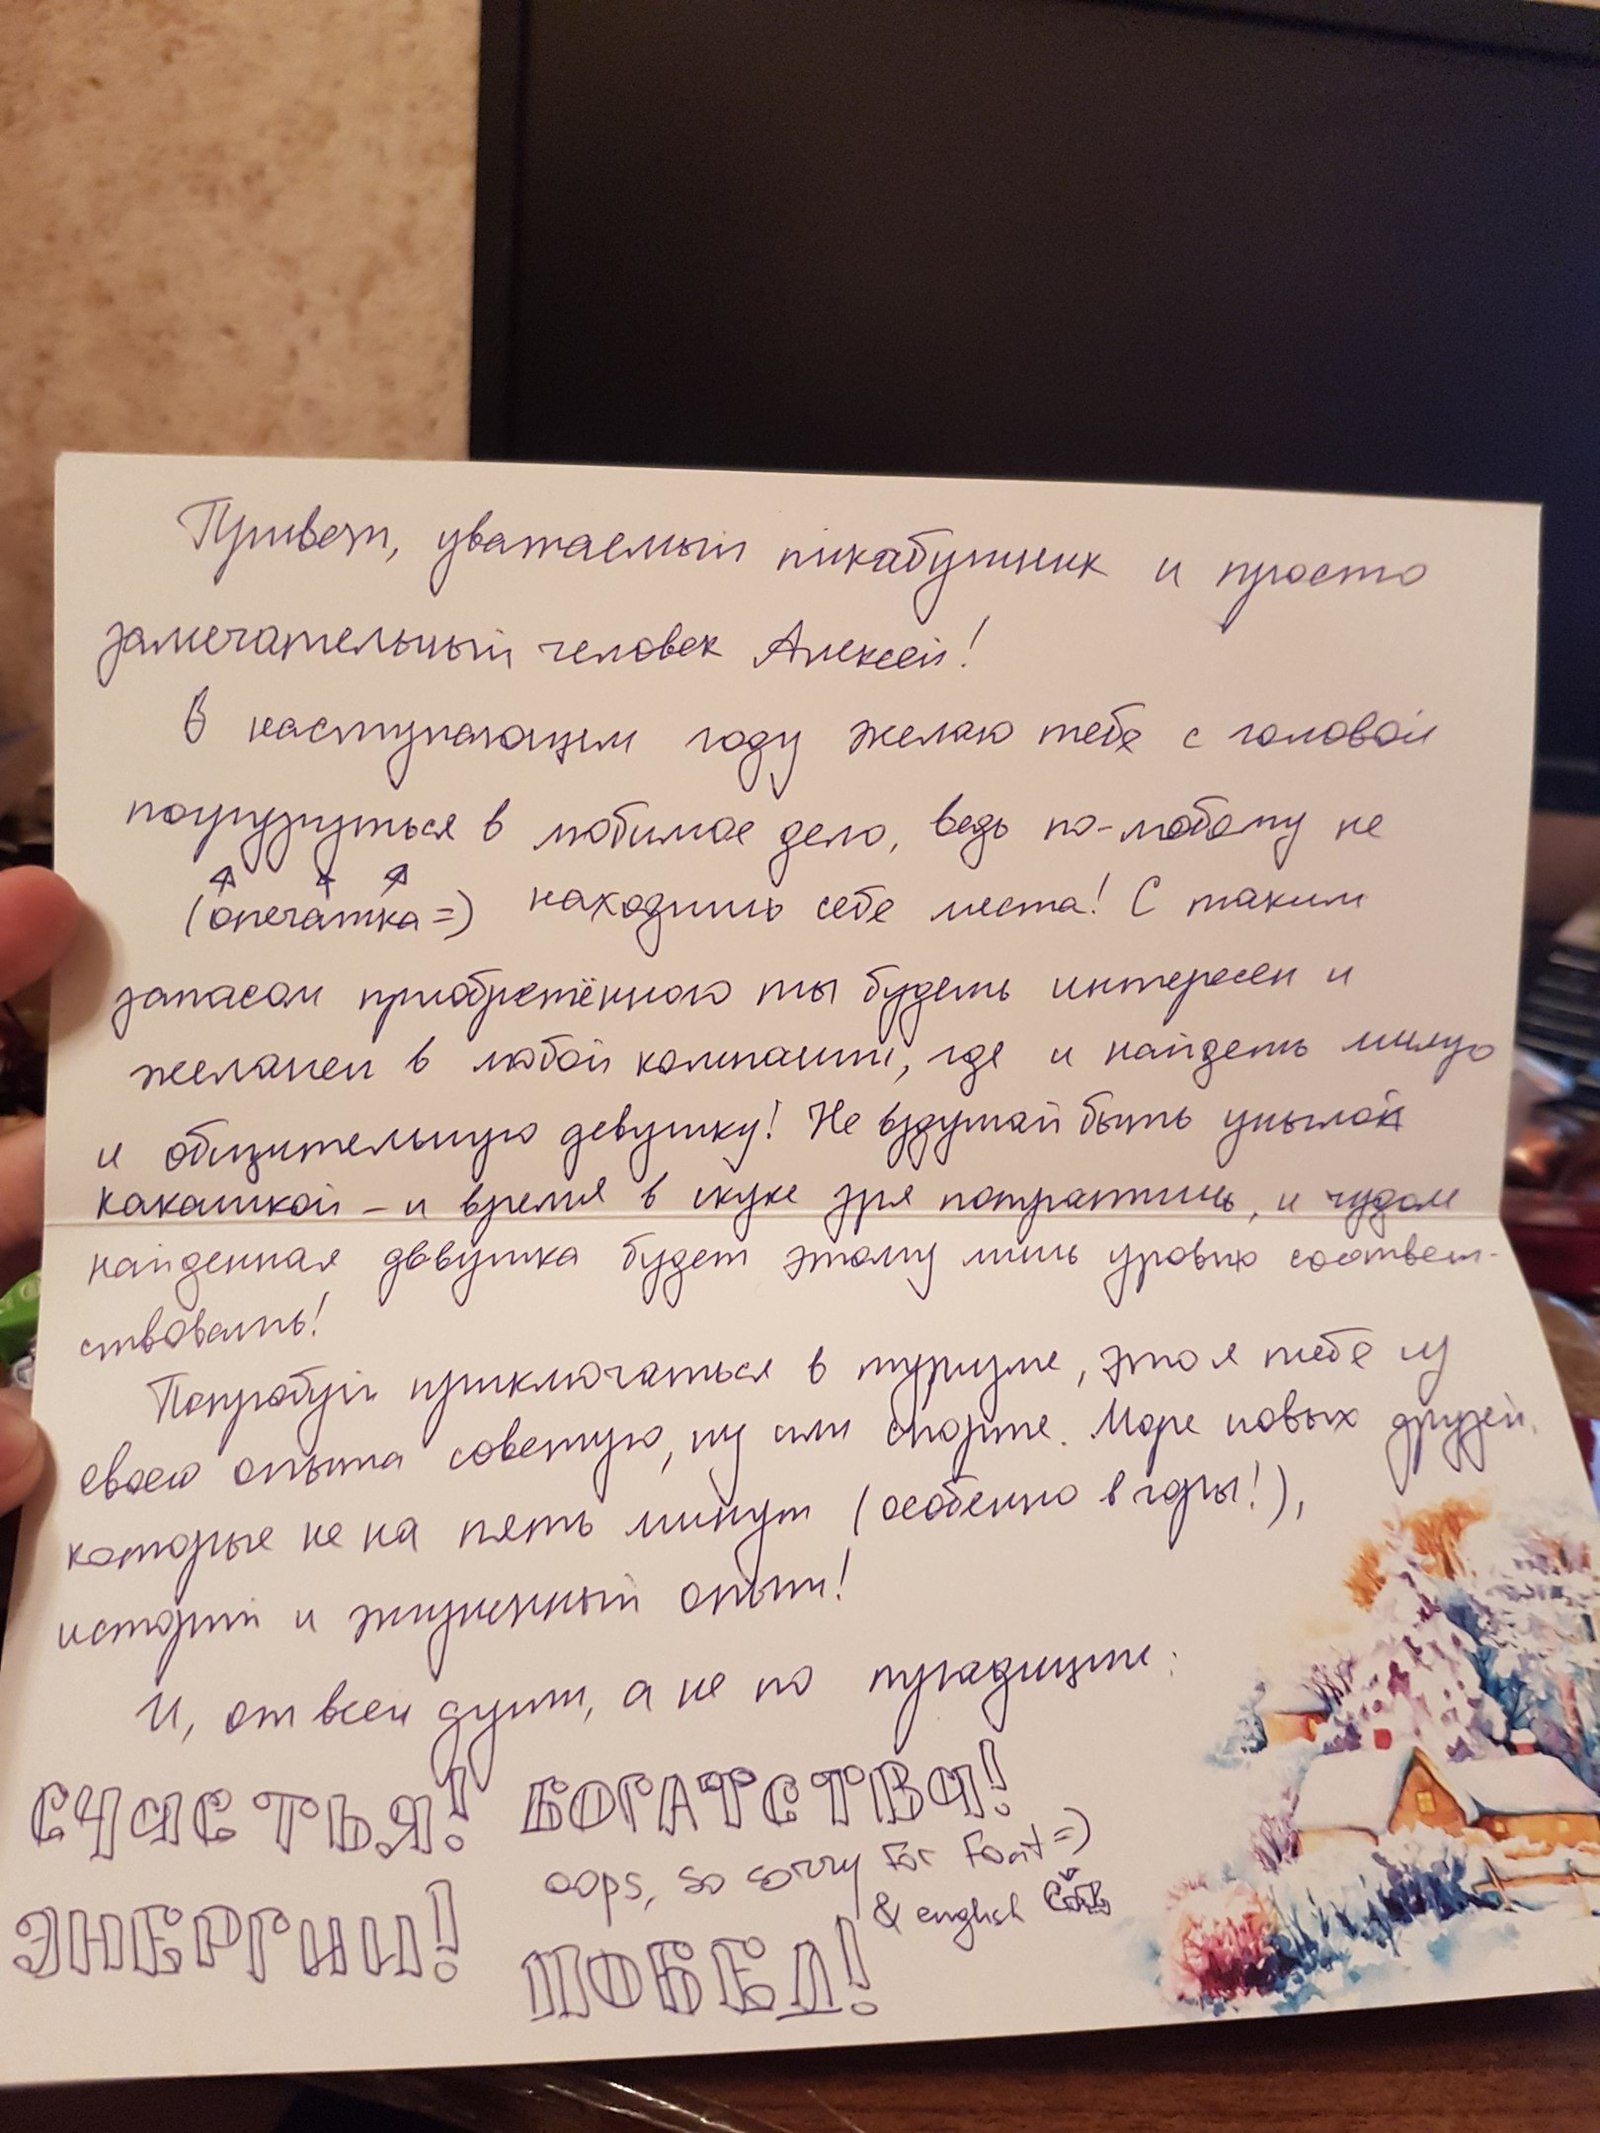 Привет, уважаемый пикабушник и просто
замечательный человек Алексей!
В наступающем году желаю тебе с головой
погрузиться в любимое дело, ведь по-любому не
(опечатка =) находишь себе места! С таким
запасом приобретённого ты будешь интересен и
желанен в любой компании, где и найдешь милую
и общительную девушку! Не вздумай быть унылой
какашкой - и время в скуке зря потратишь, и чудом
найденная девушка будет этому лишь уровню соответ-
ствовать!
Попробуй приключаться в туризме, это я тебе из
своего опыта советую, ну или спорте. Море новых друзей,
которые не на пять минут (особенно в горы!),
историй и жизненный опыт!
И, от всей души, а не по традиции:
СЧАСТЬЯ! БОГАТСТВА!
oops, so sorry for Font =)
& english
ЭНЕРГИИ! ПОБЕД!